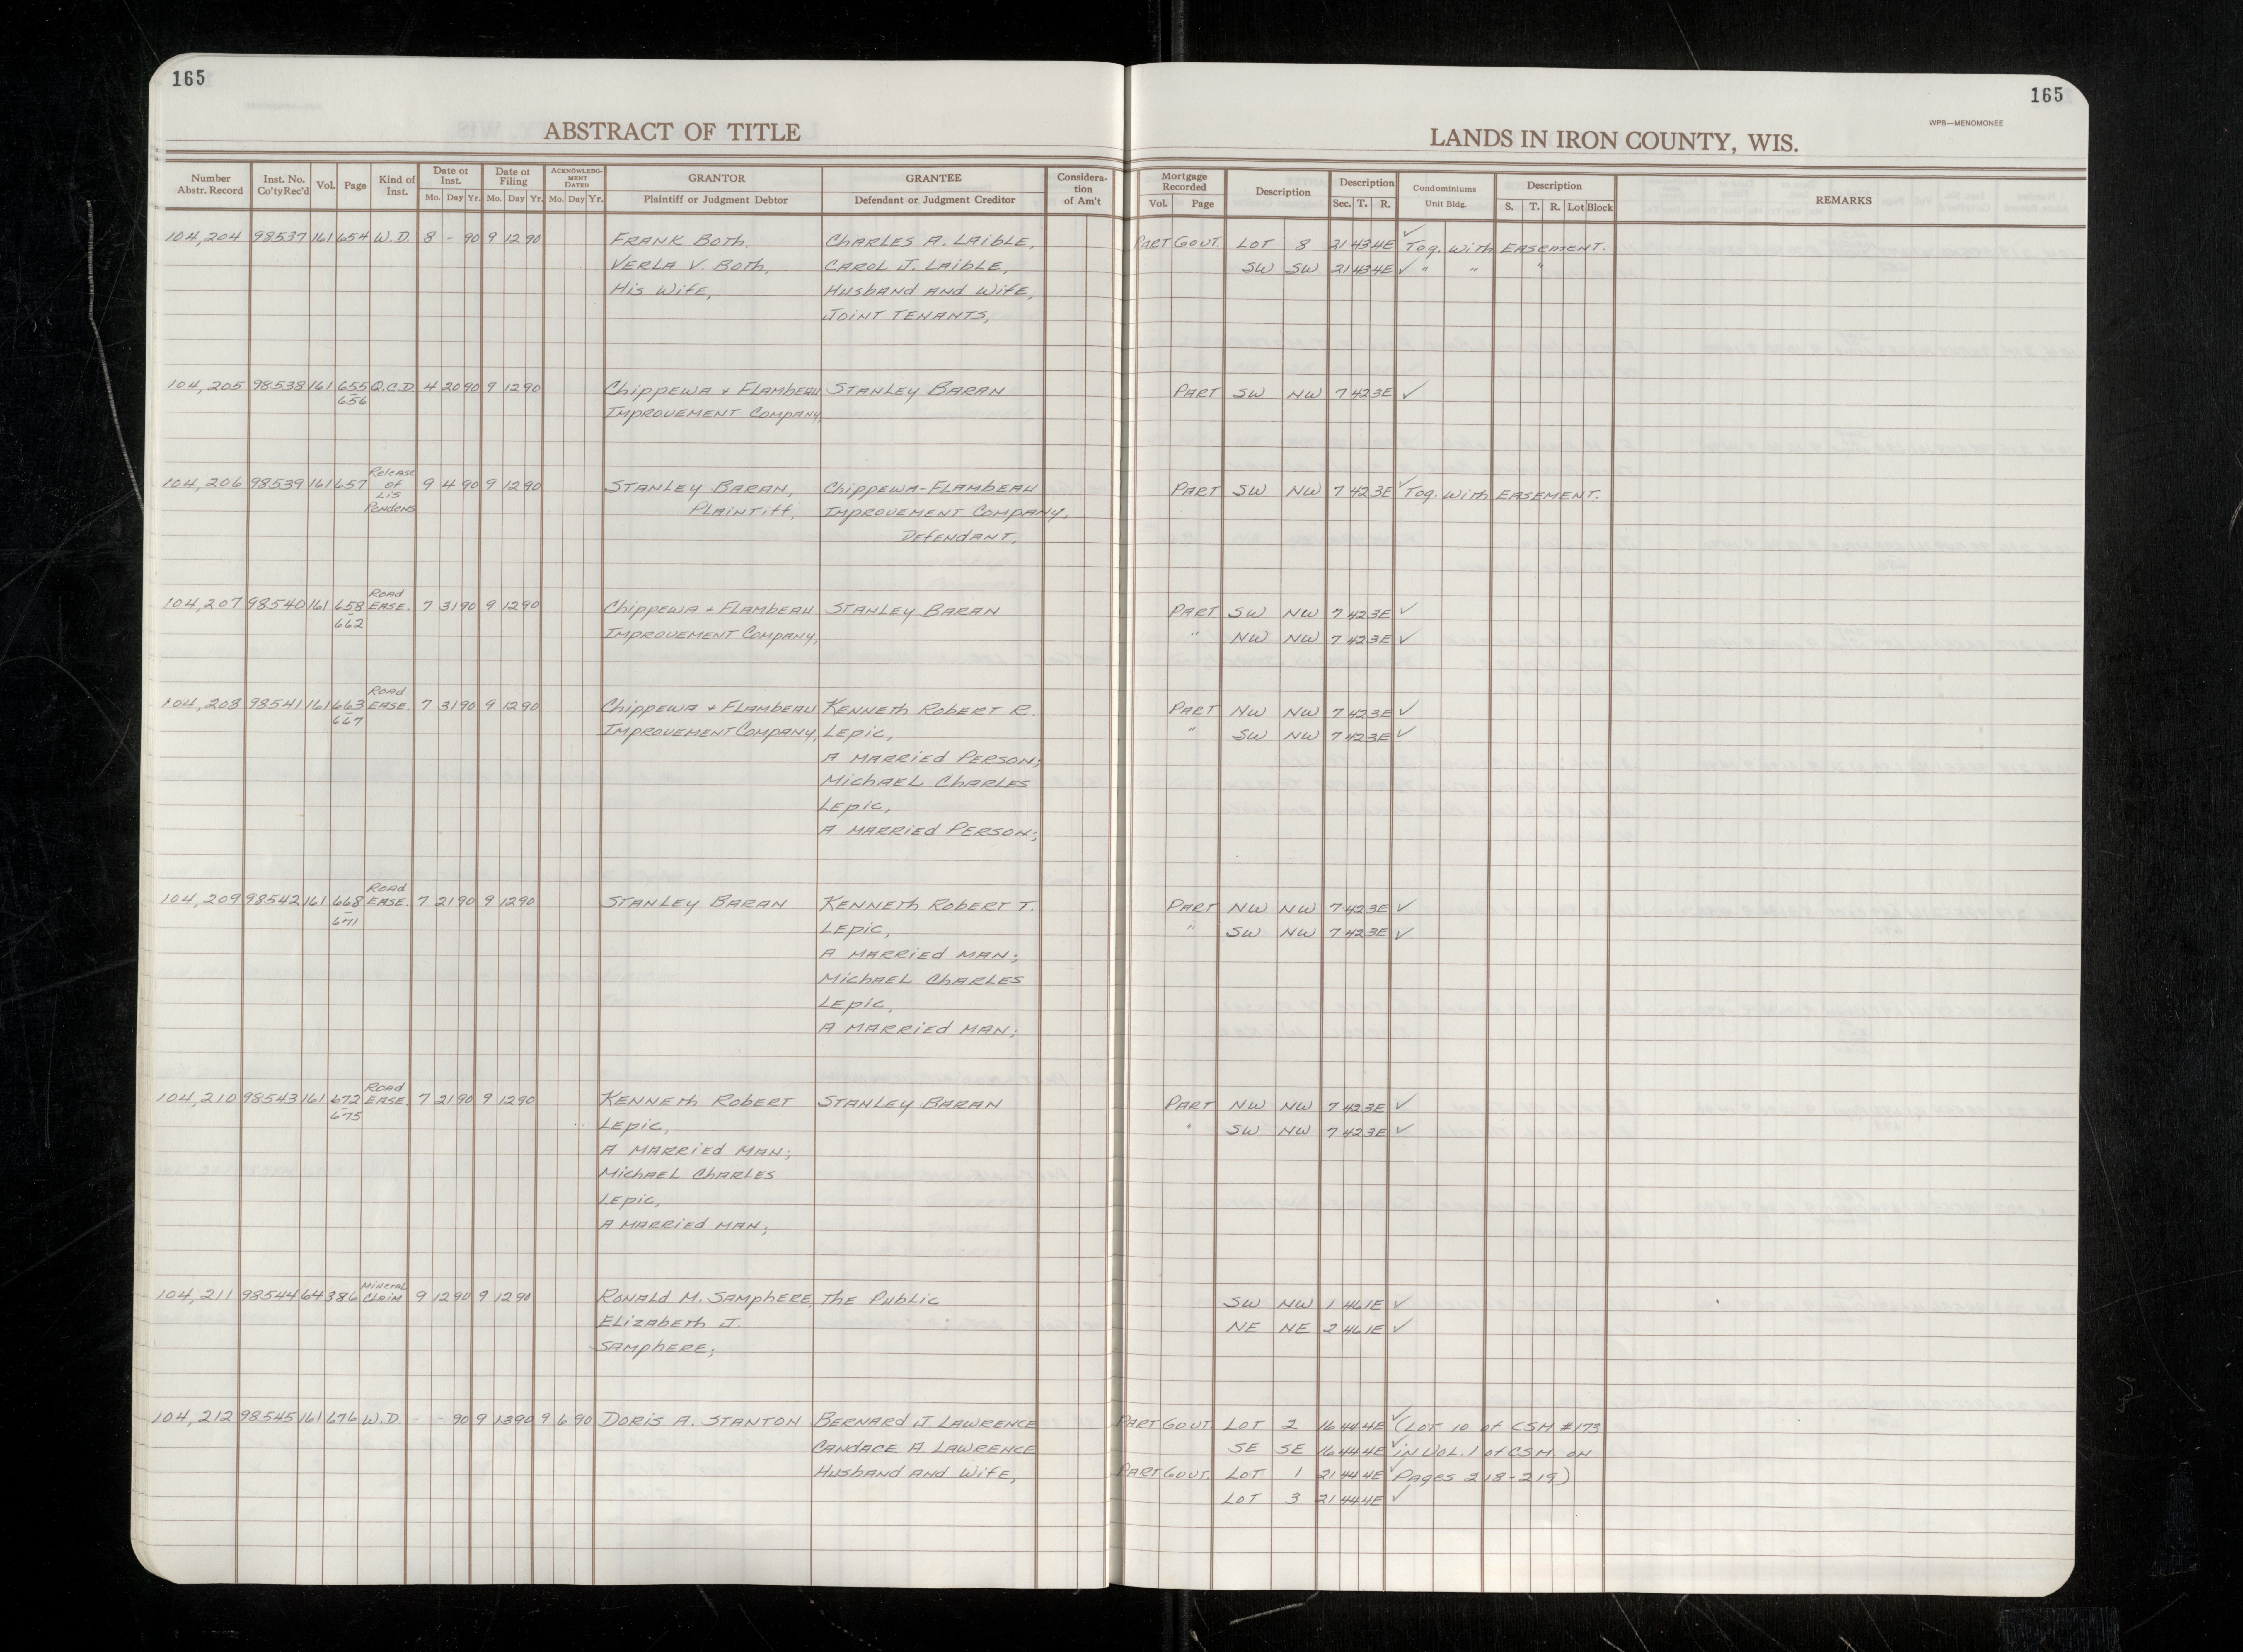 165
165
ABSTRACT OF TITLE
LANDS IN IRON COUNTY, WIS.
WPB—MENOMONEE
Number Abstr. Record | Inst. No. Co'ty Rec'd | Vol. | Page | Kind of Inst. | Date of Inst. Mo. Day Yr. | Date of Filing Mo. Day Yr. | ACKNOWLEDGMENT DATED Mo. Day Yr. | GRANTOR Plaintiff or Judgment Debtor | GRANTEE Defendant or Judgment Creditor | Consideration of Am't | Mortgage Recorded Vol. Page | Description | Description Sec. T. R. | Condominiums Unit Bldg. | Description S. T. R. Lot Block | REMARKS
104,204 98537 161 654 W.D. 8 - 90 9 12 90 FRANK Both, CHARLES A. LAIBLE, PART GOVT. LOT 8 21 43 4E ✓ Tog. With EASEMENT.
VERLA V. Both, CAROL J. LAIBLE, SW SW 21 43 4E ✓ " " "
His Wife, HUSBAND AND Wife,
JOINT TENANTS,
104,205 98538 161 655 Q.C.D. 4 20 90 9 12 90 Chippewa + FLAMBEAU STANLEY BARAN PART SW NW 7 42 3E ✓
- 656 IMPROVEMENT COMPANY,
104,206 98539 161 657 Release of Lis Pendens 9 4 90 9 12 90 STANLEY BARAN, Chippewa-FLAMBEAU PART SW NW 7 42 3E ✓ Tog. With EASEMENT.
PLAINTIFF, IMPROVEMENT COMPANY,
DEFENDANT,
104,207 98540 161 658 ROAD EASE. 7 31 90 9 12 90 Chippewa + FLAMBEAU STANLEY BARAN PART SW NW 7 42 3E ✓
- 662 IMPROVEMENT COMPANY, " NW NW 7 42 3E ✓
104,208 98541 161 663 ROAD EASE. 7 31 90 9 12 90 Chippewa + FLAMBEAU KENNETH ROBERT R. PART NW NW 7 42 3E ✓
- 667 IMPROVEMENT COMPANY, LEPIC, " SW NW 7 42 3E ✓
A MARRIED PERSON;
MICHAEL CHARLES
LEPIC,
A MARRIED PERSON;
104,209 98542 161 668 ROAD EASE. 7 21 90 9 12 90 STANLEY BARAN KENNETH ROBERT T. PART NW NW 7 42 3E ✓
- 671 LEPIC, " SW NW 7 42 3E ✓
A MARRIED MAN;
MICHAEL CHARLES
LEPIC,
A MARRIED MAN;
104,210 98543 161 672 ROAD EASE. 7 21 90 9 12 90 KENNETH ROBERT STANLEY BARAN PART NW NW 7 42 3E ✓
- 675 LEPIC, " SW NW 7 42 3E ✓
A MARRIED MAN;
MICHAEL CHARLES
LEPIC,
A MARRIED MAN;
104,211 98544 64 386 MINERAL CLAIM 9 12 90 9 12 90 RONALD M. SAMPHERE, THE PUBLIC SW NW 1 46 1E ✓
ELIZABETH J. NE NE 2 46 1E ✓
SAMPHERE;
104,212 98545 161 676 W.D. - - 90 9 13 90 9 6 90 DORIS A. STANTON BERNARD J. LAWRENCE PART GOVT. LOT 2 16 44 4E ✓ (LOT 10 of CSM #173
CANDACE A LAWRENCE SE SE 16 44 4E ✓ IN VOL. 1 of CSM. ON
HUSBAND AND WIFE, PART GOVT. LOT 1 21 44 4E ✓ PAGES 218-219)
LOT 3 21 44 4E ✓